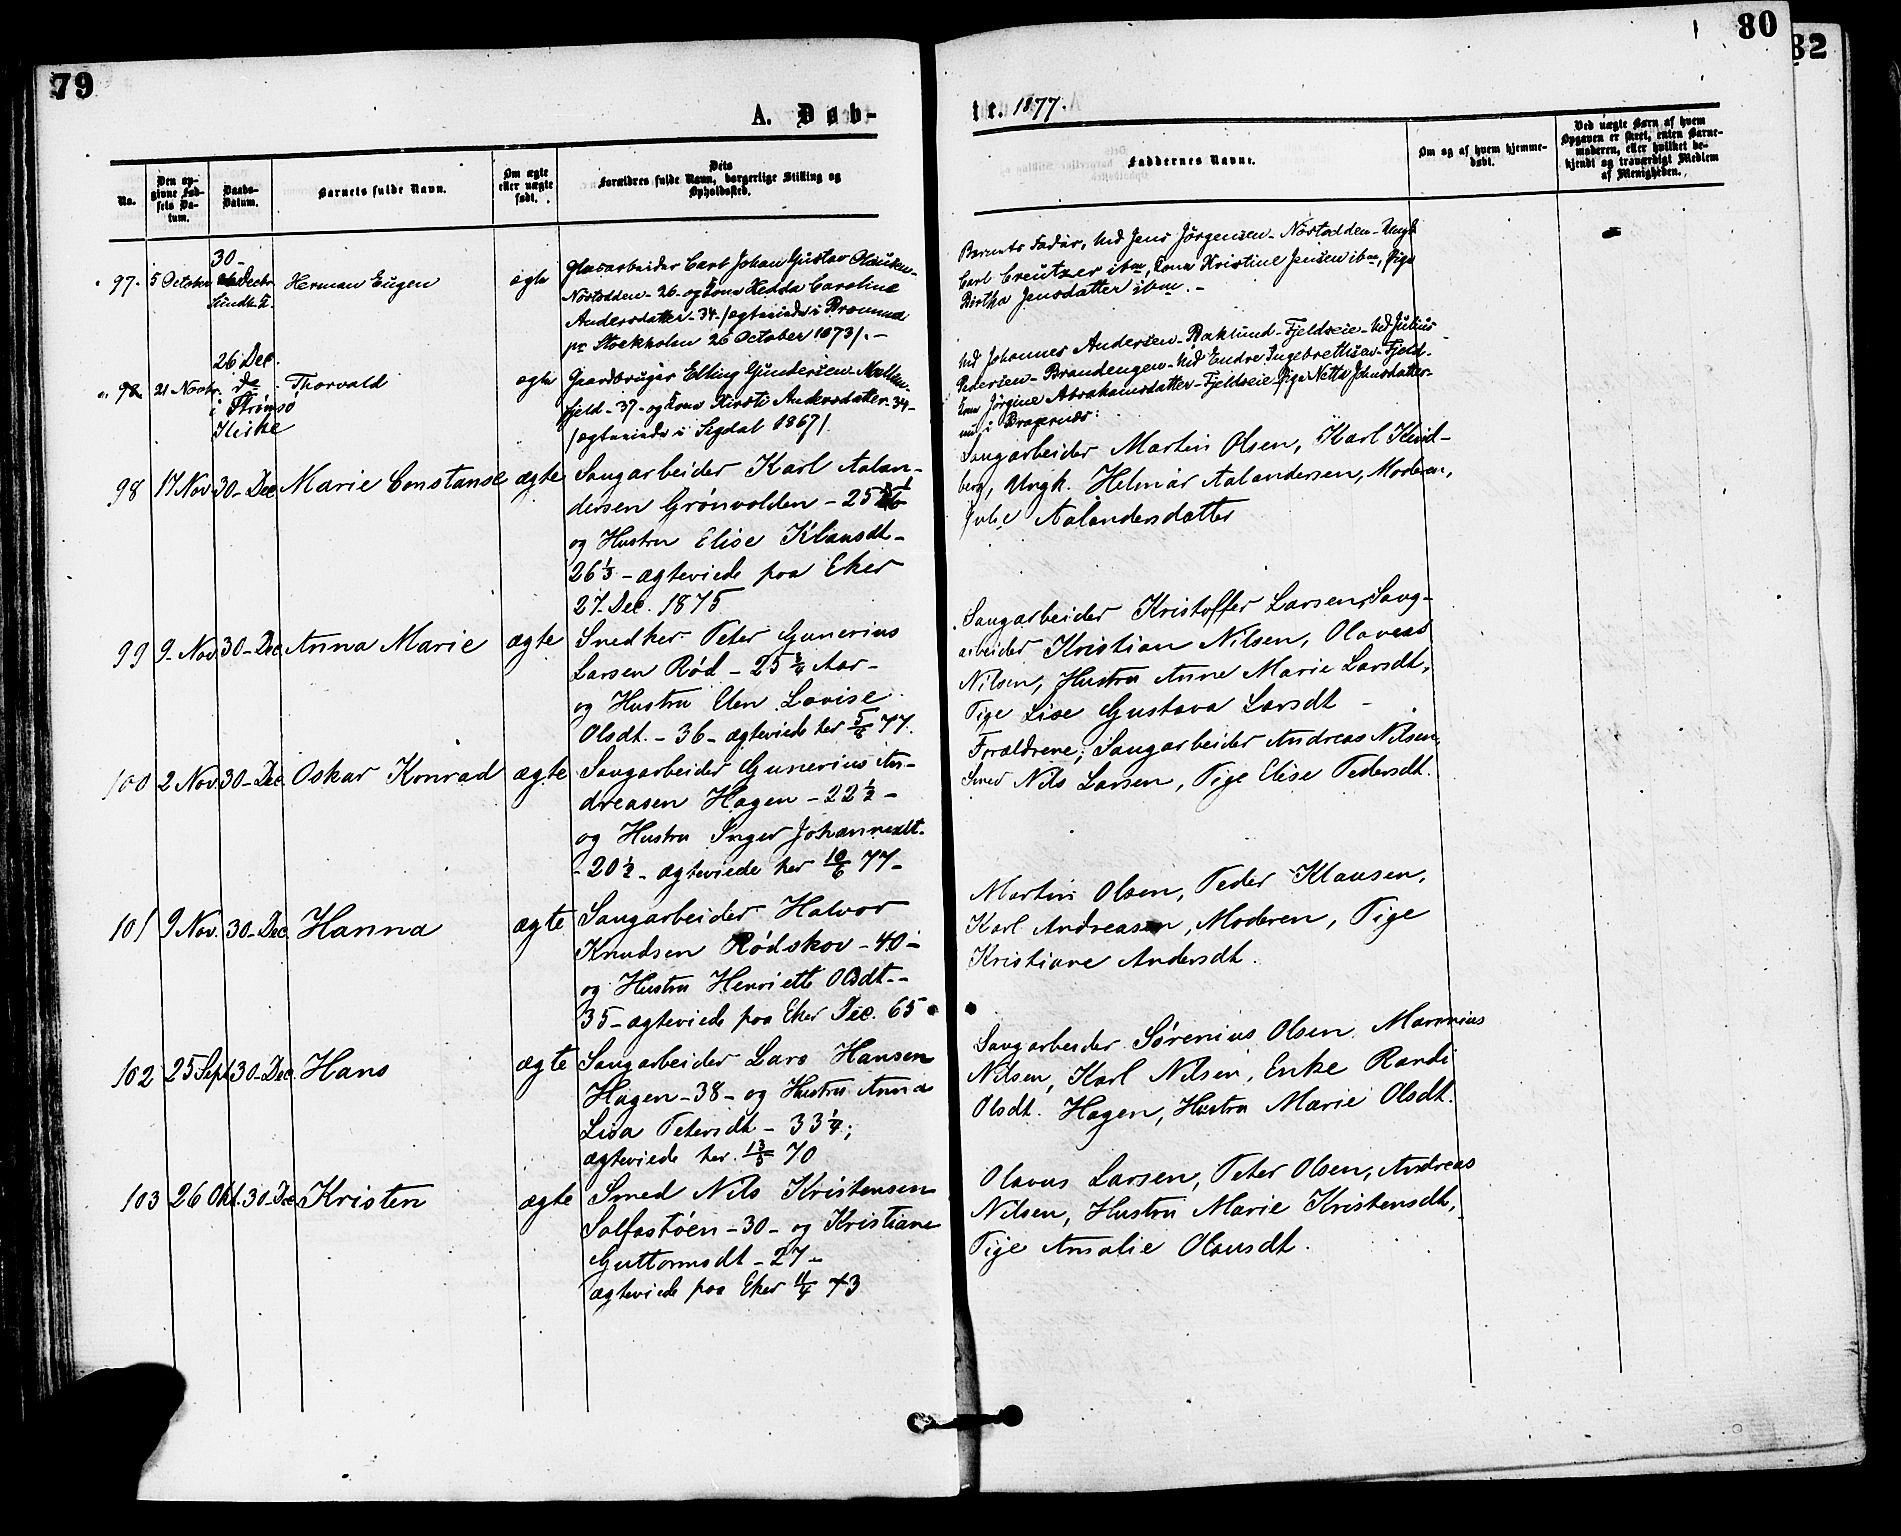 79
80
82
A. Døb-
te. 1877.
No.
Den op-
givne Fød-
sels Da-
tum.
Daabs-
Datum.
Barnets fulde Navn.
Om ægte
eller uægte
født.
Dets
Forældres fulde Navn, borgerlige Stilling og
Opholdssted.
Faddernes Navne.
Om og af hvem hjemme-
døbt.
Ved uægte Børn af hvem
Opgaven er skeet, enten Barne-
moderen, eller hvilket be-
kjendt og troværdigt Medlem
af Menigheden.
97. 5 October
30-
Decbr.
Herman Eugen
ægte
Glasarbeider Carl Johan Gustav
26 - og Kone Hedda Caroline
Andersdatter - 34 - /ægteviede i
pr Stockholm 26 October 1873/. -
Barnets Fader, Ud Jens Jörgensen - Ungk
Carl Creutzer ibm, Kone Kristine Jensen ibm, Pige
Birtha Jensdatter ibm. -
21 Novbr.
26 Dec.
i Strömsö
Kirke
Thorvald
ægte
Gaardbruger Elling Gundersen
fjeld - 37 - og Kone Kirsti Andersdatter - 34 -
/ægteviede i Sigdal 1867/.
Ud Johannes Andersen - Fjeldseie - Ud Julius
Pedersen - Brandengen - Ud Endre Ingebrethsen - Fjeld-
Kone Jörgine Abrahamsdatter - Fjeldseie Pige Netta Johnsdatter -
i Bragernæs:
98
17 Nov
30 - Dec
Marie Constanse
ægte
Saugarbeider Karl Aalan-
dersen Grønvolden - 25
og Hustru Elise Klausdt -
26 1/3 - ægteviede paa Eker
27. Dec. 1875
Saugarbeider Martin Olsen, Karl Klind-
berg, Ungk. Helmar Aalandersen, Moderen,
Julie Aalandersdatter
99
9 - Nov
30 - Dec
Anna Marie
ægte
Snedker Peter Gunerius
Larsen Rød - 25 3/4 Aar -
og Hustru Elen Lovise
Olsdt. - 36 - ægteviede her 5/8 77.
Saugarbeider Kristoffer Larsen, Saug-
arbeider Kristian Nilsen, Olaves
Nilsen, Hustru Anne Marie Larsdt,
Pige Lise Gustava Larsdt -
100
2 Nov
30 - Dec.
Oskar Konrad
ægte
Saugarbeider Gunerius An-
dreasen Hagen - 22 1/2 -
og Hustru Inger Johannesdt.
- 20 1/2 - ægteviede her 10/6 77 -
Forældrene, Saugarbeider Andreas Nilsen,
Smed Nils Larsen, Pige Elise Pedersdt.
101
9 Nov.
30 - Dec.
Hanna
ægte
Saugarbeider Halvor
Knudsen Rødskov - 40 -
og Hustru Henriette Olsdt -
35 - ægteviede paa Eker Dec. 65
Martin Olsen, Peder Klausen,
Karl Andreasen, Moderen, Pige
Kristiane Andersdt.
102
25 Sept
30 - Dec.
Hans
ægte
Saugarbeider Lars Hansen
Hagen - 38 - og Hustru Anna
Lisa Petersdt - 33 1/4;
ægteviede her. 13/5 70
Saugarbeider Sørenius Olsen,
Nilsen, Karl Nilsen, Enke Randi
Olsdt. Hagen, Hustru Marie Olsdt.
103
26 Okt.
30 - Dec
Kristen
ægte
Smed Nils Kristensen
Solfastøen - 30 - og Kristiane
Guttormsdt - 27 -
ægteviede paa Eker 11/4 73
Olavus Larsen, Peter Olsen, Andreas
Nilsen, Hustru Marie Kristensdt,
Pige Amalie Olausdt.